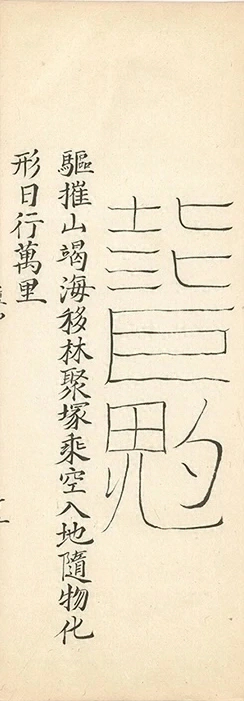 驅摧山竭海移林聚塚乘空入地隨物化
形日行萬里